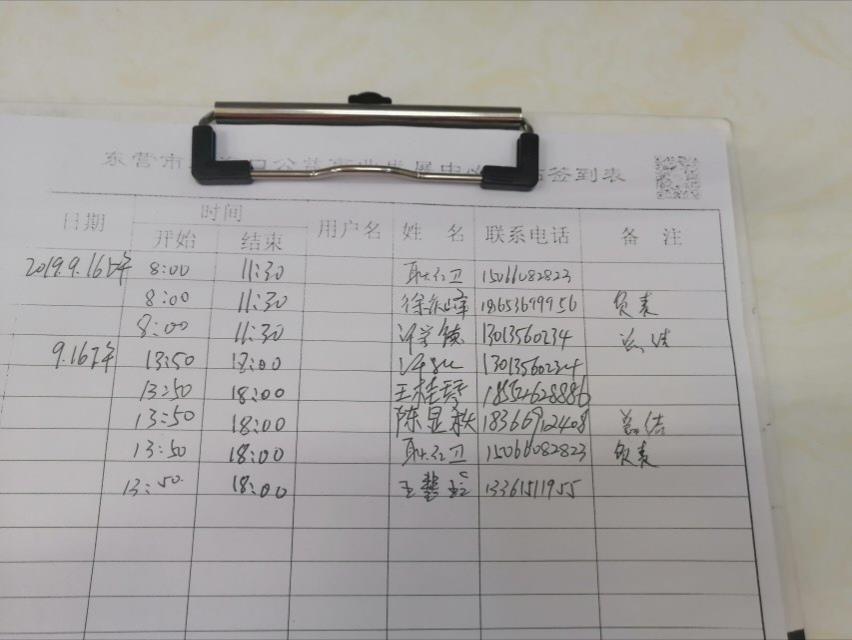 东营市 公益事业发展中心 签到表
日期 时间 用户名 姓 名 联系电话 备 注
开始 结束
2019.9.16上午 8:00 11:30 耿红卫 15066082823
8:00 11:30 徐 峰 18653699956 负责
8:00 11:30 许学镇 13013560234 总结
9.16下午 13:50 18:00 许 13013560234
13:50 18:00 王桂琴 18552628886
13:50 18:00 陈显秩 18366912408 总结
13:50 18:00 耿红卫 15066082823 负责
13:50 18:00 王 13361511955